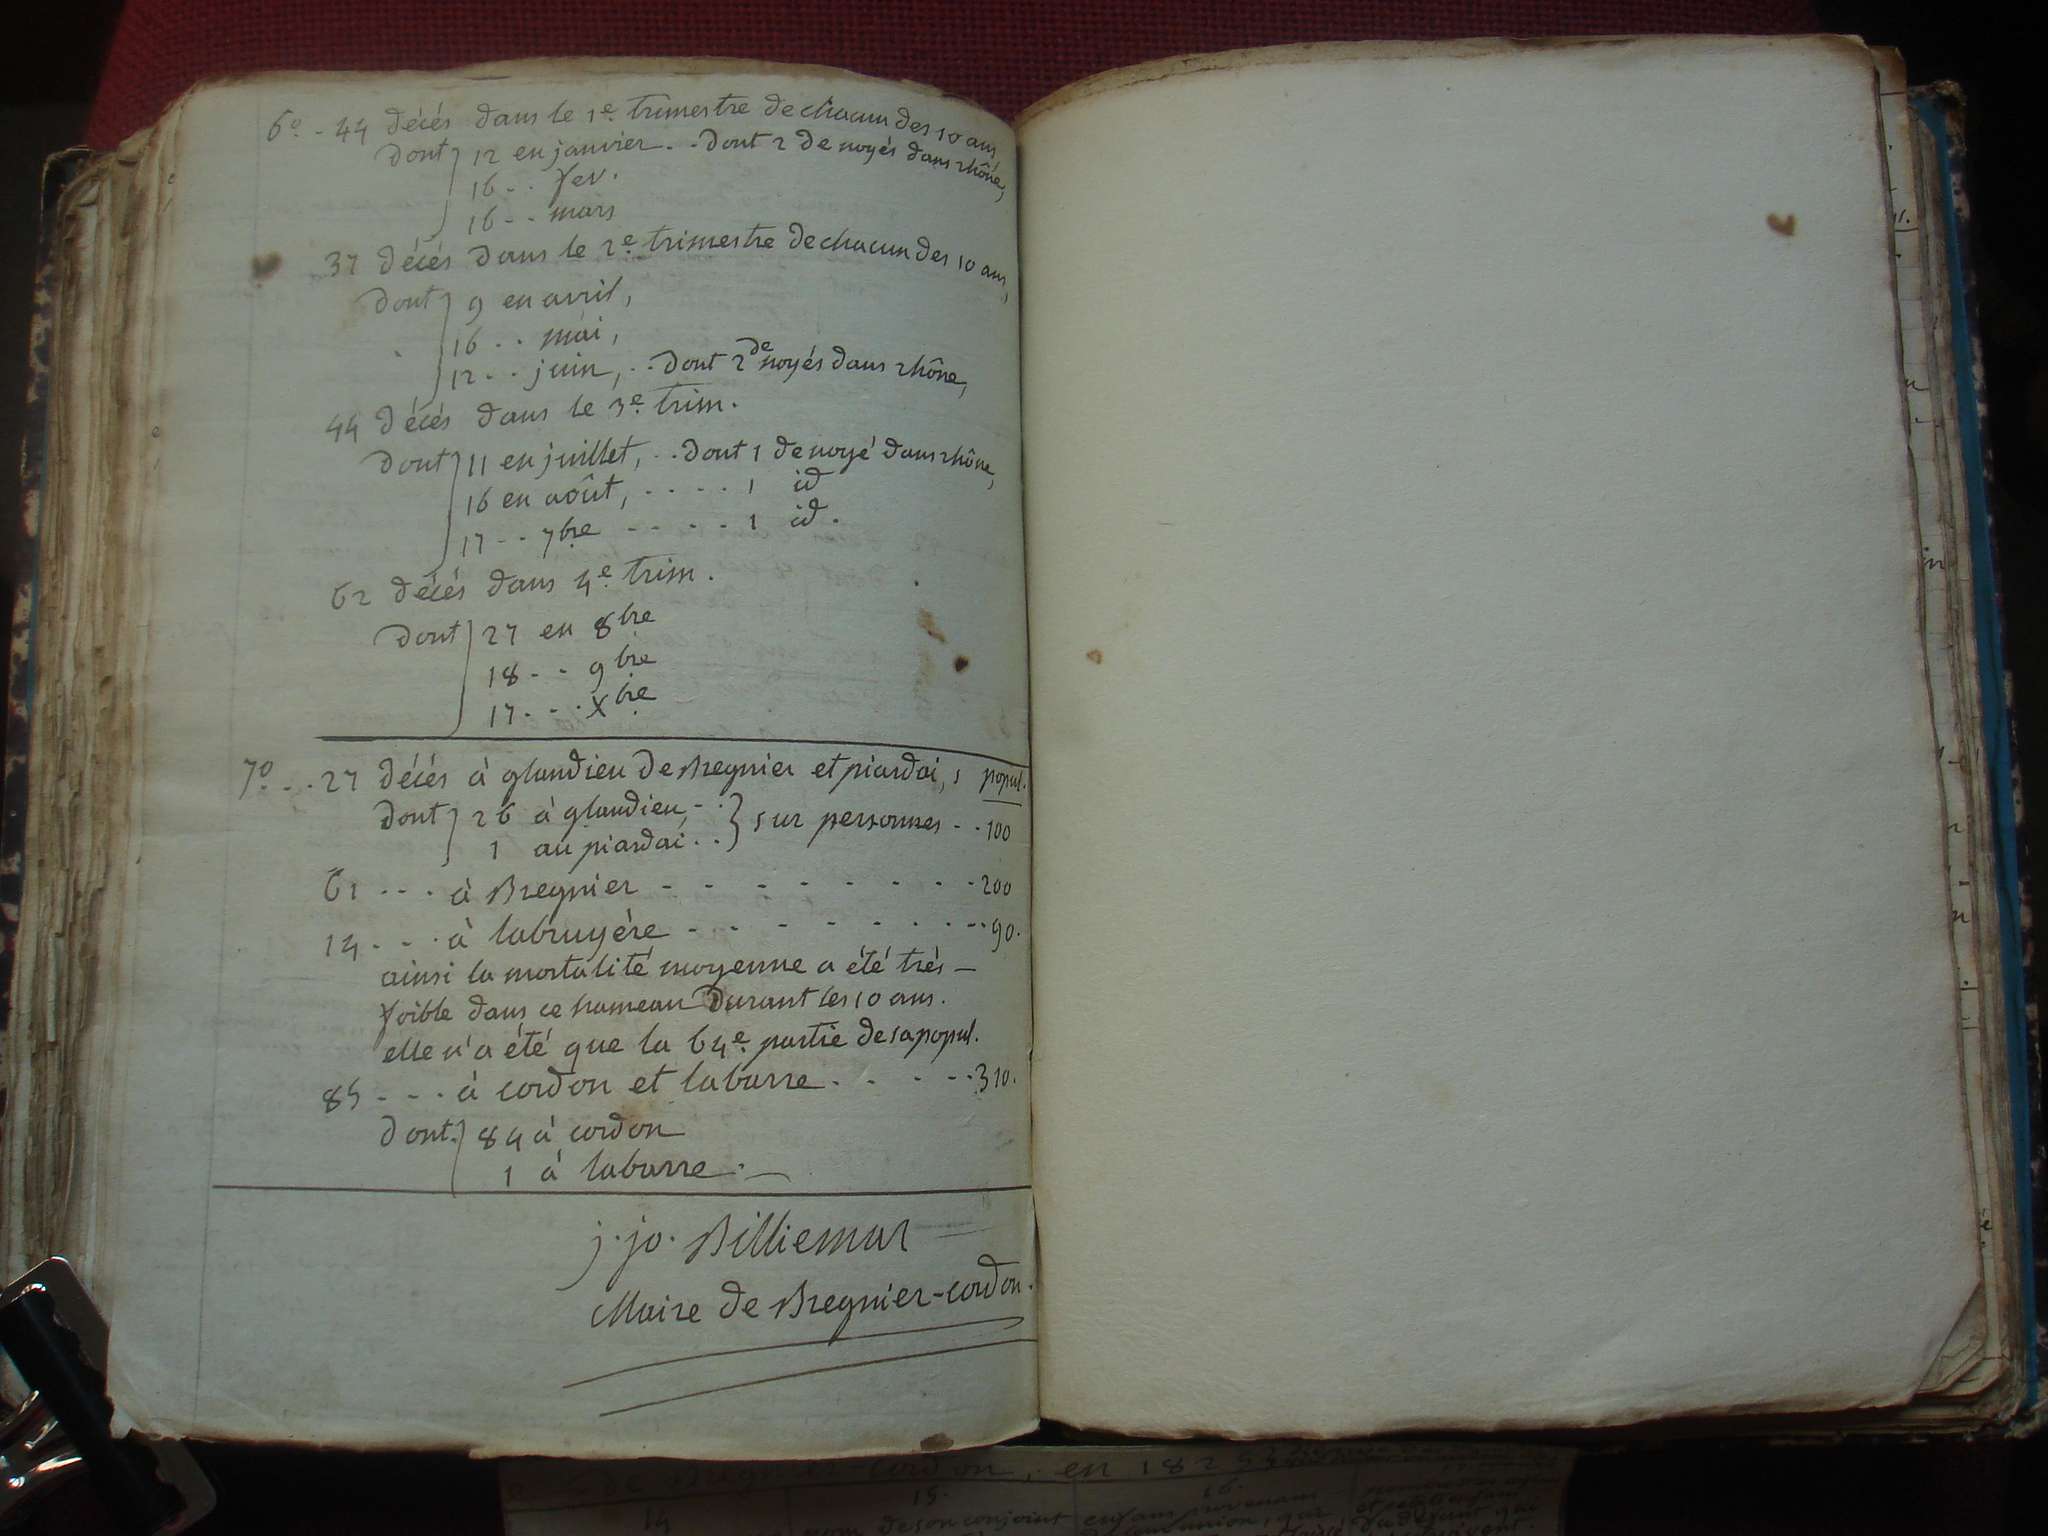 6º. - 44 décés dans le 1e. trimestre de chacun des 10 ans
dont 12 en janvier. . . dont 2 de noyés dans rhône,
16 . . fev.
16 . . mars
37 décés dans le 2e. trimestre de chacun des 10 ans,
dont 9 en avril,
16 . . mai,
12 . . juin, . . dont 2 de noyés dans rhône,
44 décés dans le 3e. trim.
dont 11 en juillet, . . dont 1 de noyé dans rhône,
16 en août, . . . . 1 id
17 . . 7bre . . . . 1 id.
62 décés dans 4e. trim.
dont 27 en 8bre
18 . . 9bre
17 . . . Xbre
7º. . . 27 décés à glandieu de Bregnier et piardai, s popul.
dont 26 à glandieu, . . } sur personnes . . 100
1 au piardai . .
61 . . . à Bregnier . . . . . . . . 200
14 . . . à labruyère . . . . . . . . 90.
ainsi la mortalité moyenne a été très-
foible dans ce hameau durant les 10 ans.
elle n'a été que la 64e. partie de sa popul.
85 . . . à cordon et labarre . . . . . 310.
dont. 84 à cordon
1 à labarre. —
j. jo. Billiemaz
Maire de Bregnier-cordon.
cordon, en 182
14 15. 16.
nom de son conjoint enfans provenans